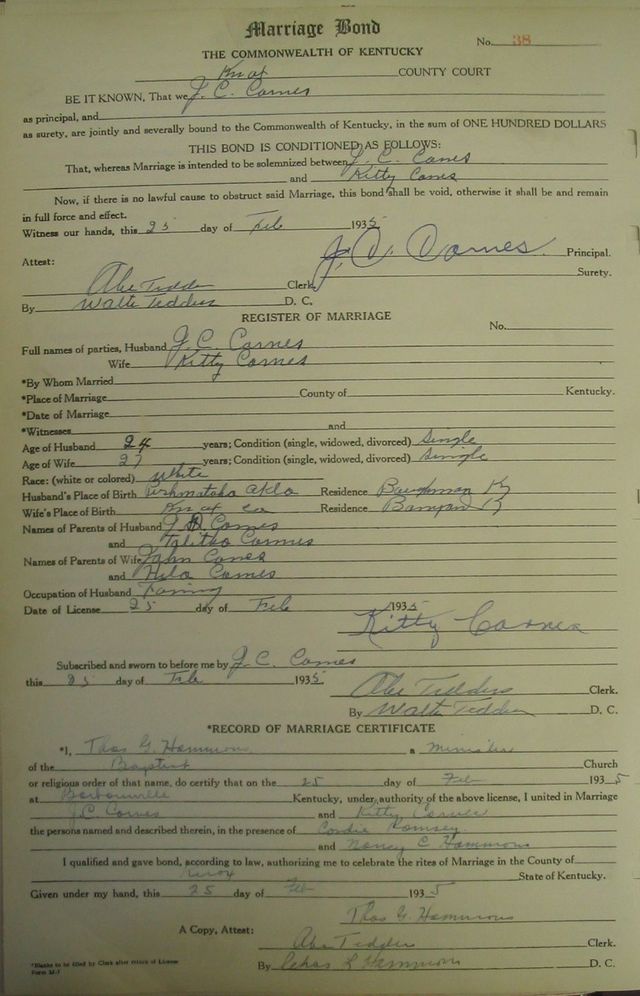 Marriage Bond
No. 38
THE COMMONWEALTH OF KENTUCKY
Knox COUNTY COURT
BE IT KNOWN, That we J. C. Carnes
as principal, and
as surety, are jointly and severally bound to the Commonwealth of Kentucky, in the sum of ONE HUNDRED DOLLARS
THIS BOND IS CONDITIONED AS FOLLOWS:
That, whereas Marriage is intended to be solemnized between J. C. Carnes
and Kitty Carnes
Now, if there is no lawful cause to obstruct said Marriage, this bond shall be void, otherwise it shall be and remain
in full force and effect.
Witness our hands, this 25 day of Feb 1935
J. C. Carnes Principal.
Attest: Surety.
Abe Tedders Clerk,
By Walter Tedders D. C.
REGISTER OF MARRIAGE
No.
Full names of parties, Husband J. C. Carnes
Wife Kitty Carnes
*By Whom Married
*Place of Marriage County of Kentucky.
*Date of Marriage
*Witnesses and
Age of Husband 24 years; Condition (single, widowed, divorced) Single
Age of Wife 27 years; Condition (single, widowed, divorced) Single
Race: (white or colored) white
Husband's Place of Birth Residence Ky
Wife's Place of Birth Knox Co Residence Ky
Names of Parents of Husband Carnes
and Talitha Carnes
Names of Parents of Wife John Carnes
and Carnes
Occupation of Husband Farming
Date of License 25 day of Feb 1935
Kitty Carnes
Subscribed and sworn to before me by J. C. Carnes
this 25 day of Feb 1935
Abe Tedders Clerk.
By Walter Tedders D. C.
*RECORD OF MARRIAGE CERTIFICATE
*I, Thos G. Hammons a Minister
of the Baptist Church
or religious order of that name, do certify that on the 25 day of Feb 1935
at Barbourville Kentucky, under authority of the above license, I united in Marriage
J.C. Carnes and Kitty Carnes
the persons named and described therein, in the presence of Ramsey
and Nancy C Hammons
I qualified and gave bond, according to law, authorizing me to celebrate the rites of Marriage in the County of
Knox State of Kentucky.
Given under my hand, this 25 day of Feb 1935
Thos G. Hammons
A Copy, Attest:
Abe Tedders Clerk.
By Hammons D. C.
*Blanks to be filled by Clerk after return of License